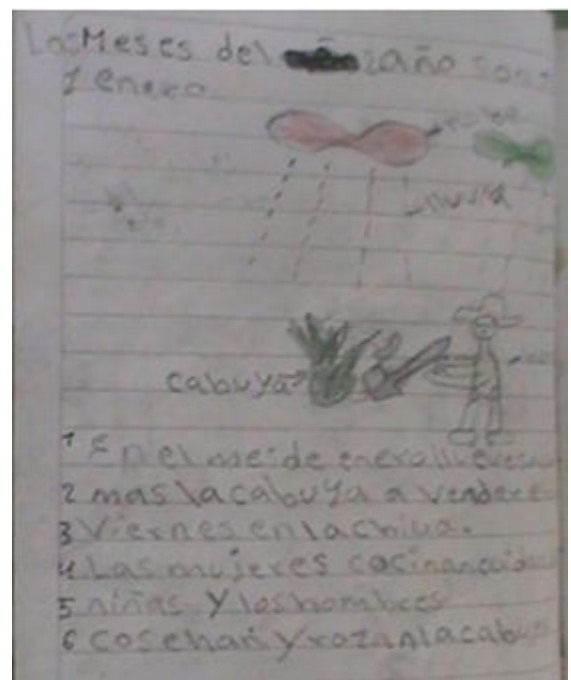 Los Meses del año son:
1 enero
nube
lluvia
cabuya
1 En el mes de enero llueve
2 mas la cabuya a vender e
3 Viernes en la chiva.
4 Las mujeres cocinan
5 niñas y los hombres
6 cosechan y rozan la cabuya